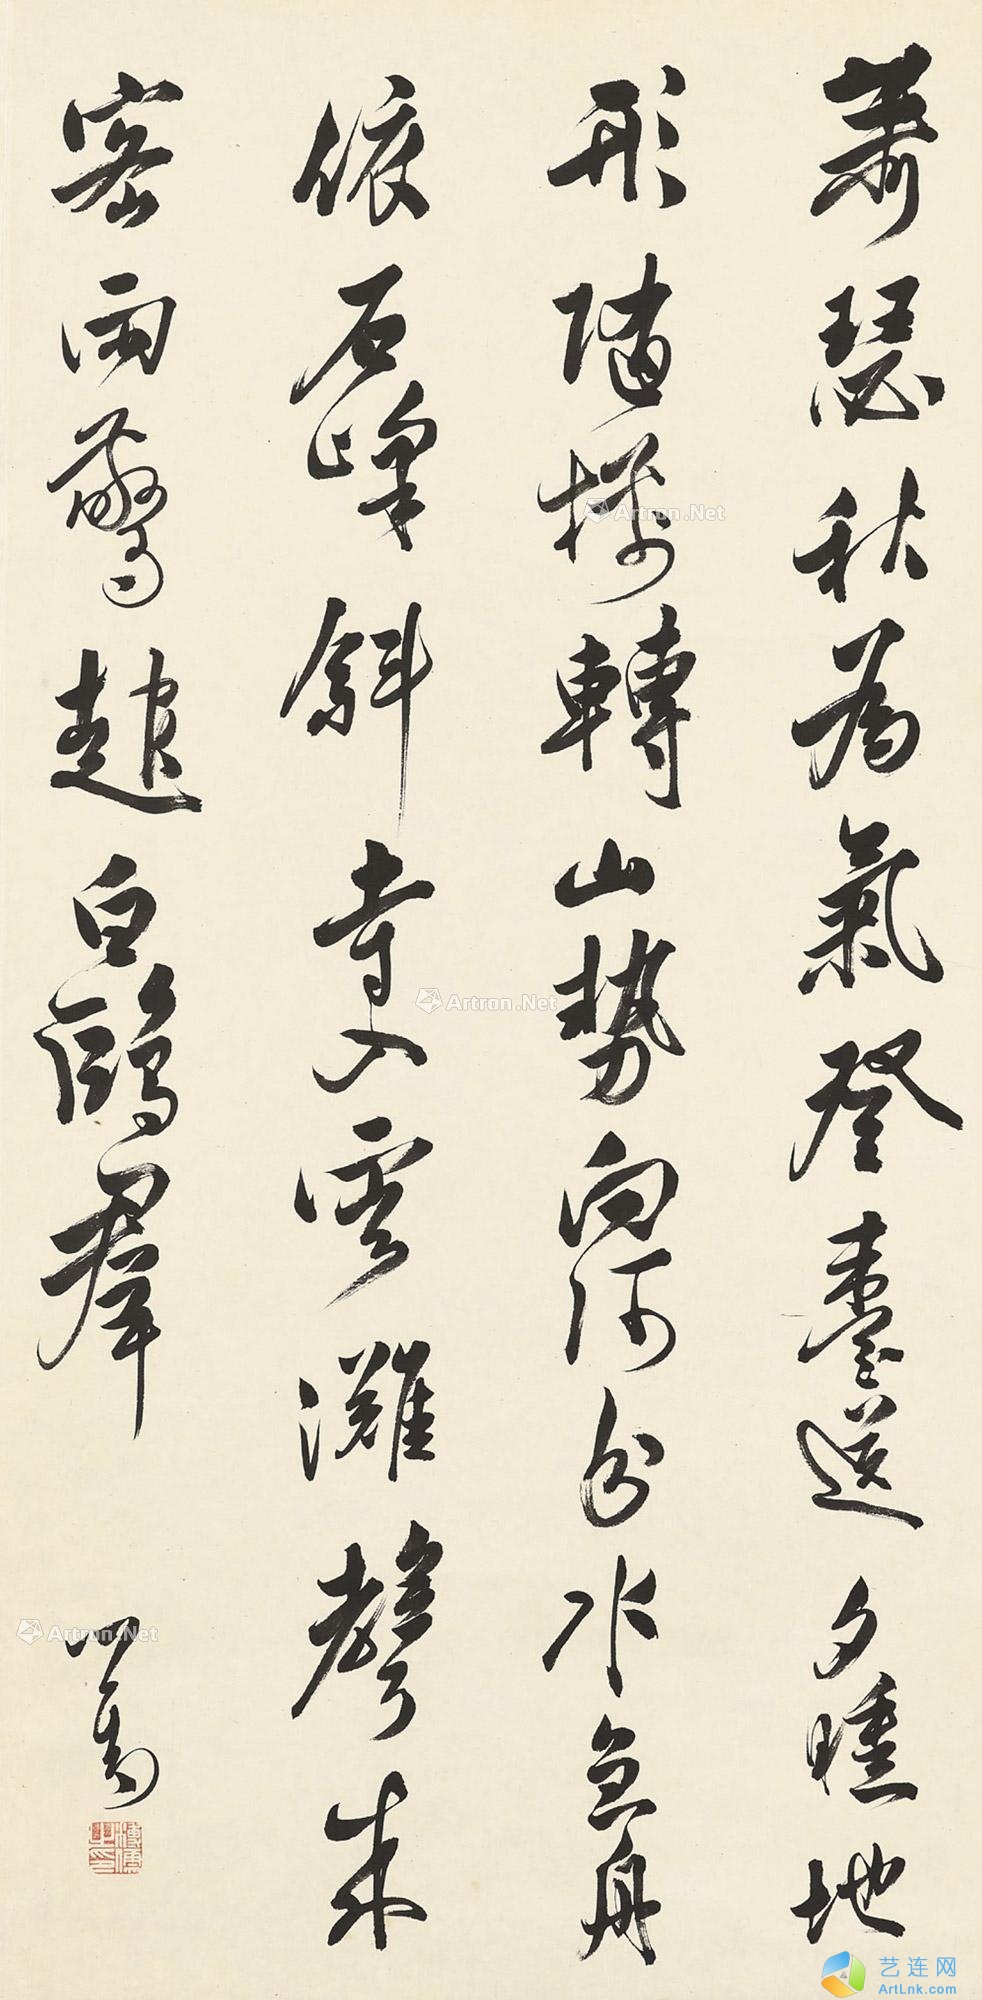 蕭瑟秋為氣登臺送夕曛地
形隨轉山勢向河分水急舟
依石峰斜寺入雲灘聲來
密雨驚起白鷗群
心畬
溥儒之印
Artron.Net
Artron.Net
Artron.Net
艺连网
ArtLnk.com